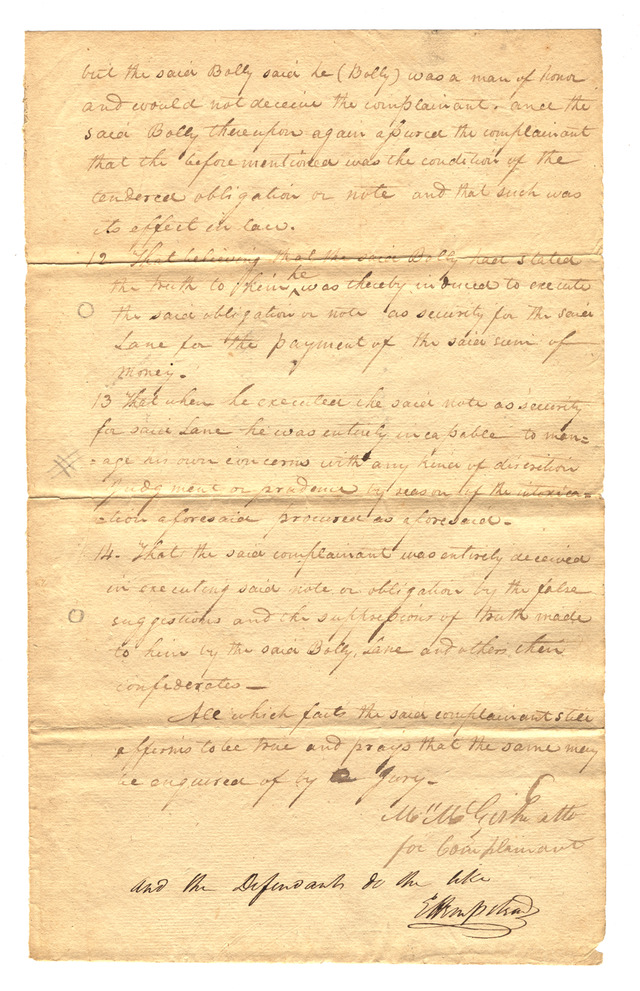 but the said Bolly said he (Bolly) was a man of honor
and would not deceive the complainant. and the
said Bolly thereupon again assured the complainant
that the before mentioned was the condition of the
tendered obligation or note and that such was
its effect in law.
12 That believing that the said Bolly had stated
the truth to him he was thereby induced to execute
the said obligation or note as security for the said
Lane for the payment of the said sum of
money.
13 That when he executed the said note as security
for said Lane he was entirely incapable to man=
=age his own concerns with any kind of discretion
Judgment or prudence by reason of the intoxica=
=tion aforesaid procured as aforesaid.
14. That the said complainant was entirely deceived
in executing said note or obligation by the false
suggestions and the suppressions of truth made
to him by the said Bolly, Lane and others their
confederates—
All which facts the said complainant still
affirms to be true and prays that the same may
be enquired of by a Jury.
atto
for Complainant
and the Defendants do the like
E Hempstead